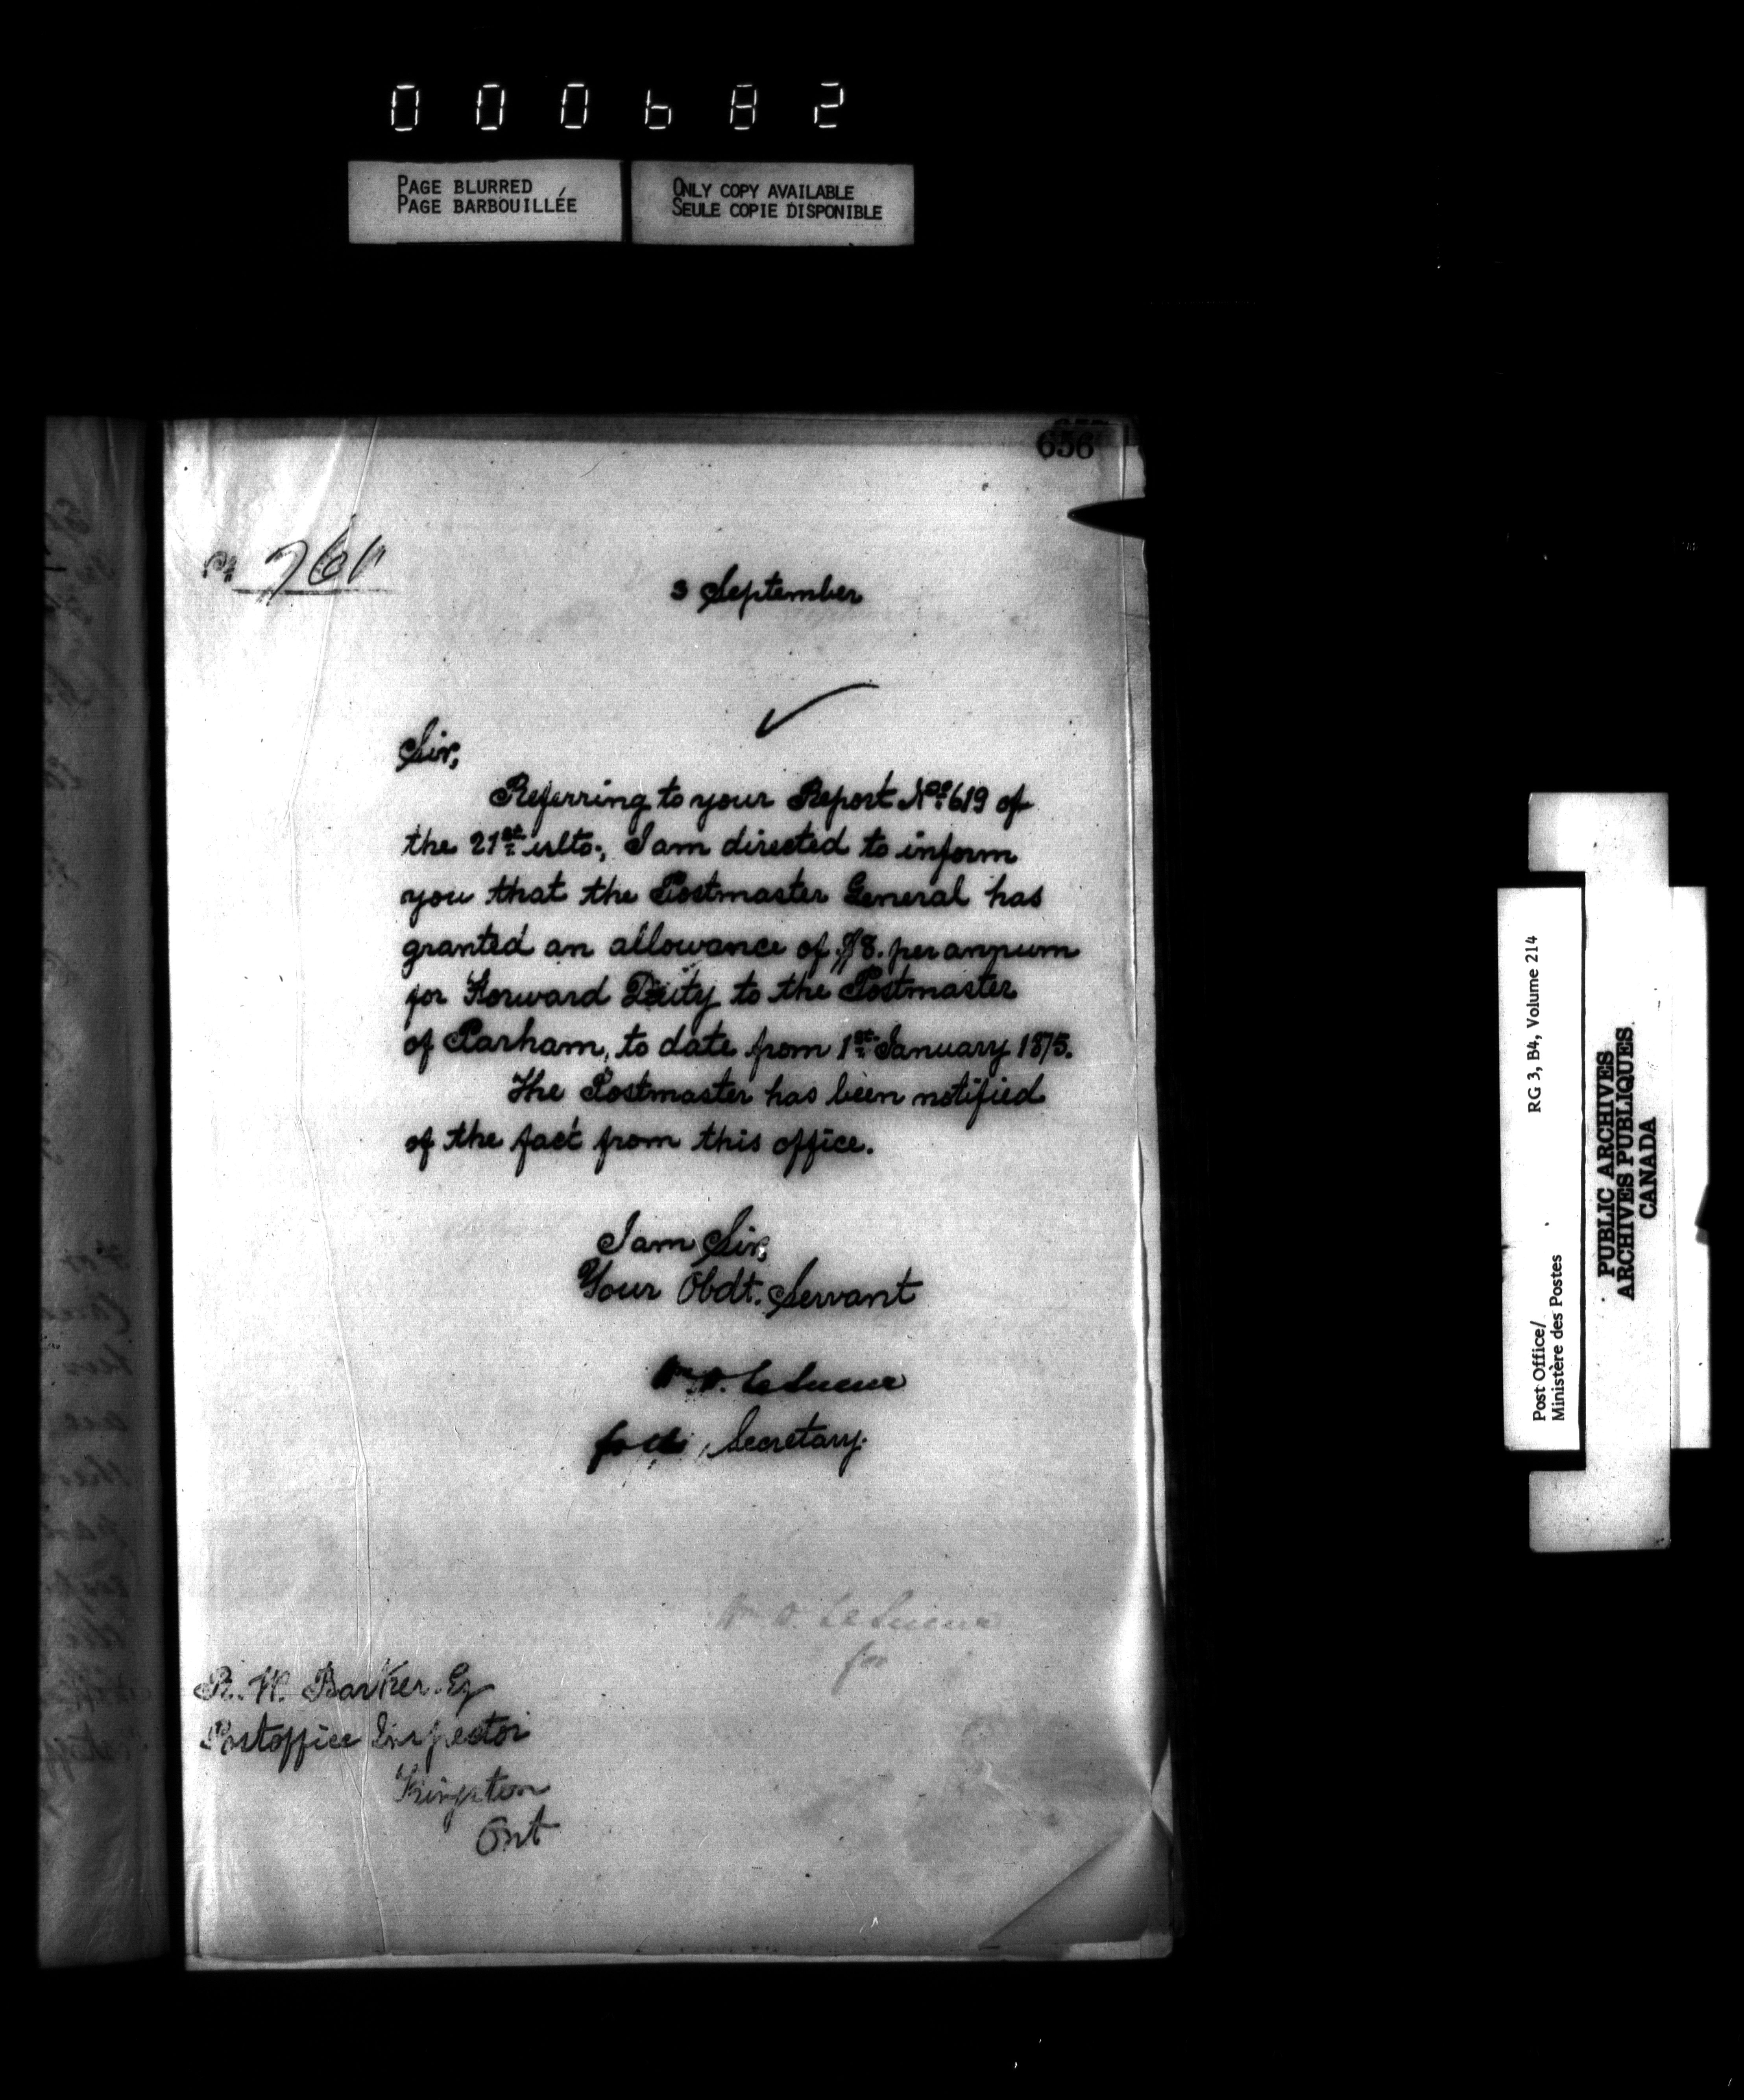 000682
PAGE BLURRED
PAGE BARBOUILLÉE
ONLY COPY AVAILABLE
SEULE COPIE DISPONIBLE
656
761
3 September
Sir,
Referring to your Report No. 619 of
the 21st ulto., I am directed to inform
you that the Postmaster General has
granted an allowance of $8. per annum
for Forward Duty to the Postmaster
of Parham, to date from 1st January 1875.
The Postmaster has been notified
of the fact from this office.
I am Sir,
Your Obdt. Servant
Wm D. LeSueur
for Secretary.
Wm D. LeSueur
for
R. W. Barker. Eq
Postoffice Inspector
Kingston
Ont
RG 3, B4, Volume 214
Post Office/
Ministère des Postes
PUBLIC ARCHIVES
ARCHIVES PUBLIQUES
CANADA